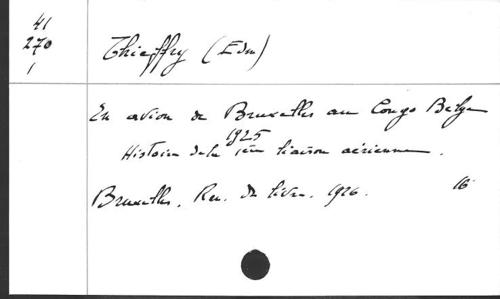 41
270
1
Thieffry (Edm)
En avion de Bruxelles au Congo Belge
1925
Histoire de la 1ère liaison aérienne.
Bruxelles, Ren. du livre. 1926. 16